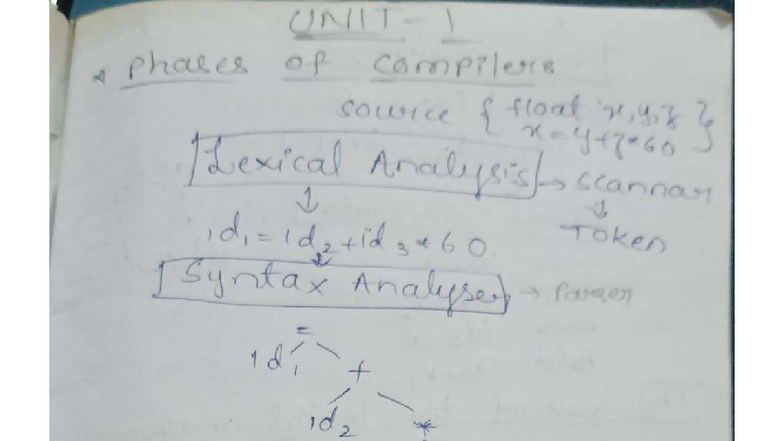 UNIT-1
* Phases of Compilers
source { float x,y,z }
x=y+z*60
Lexical Analysis → scannar
↓ ↓
id1 = id2 + id3 * 60 TOKen
↓
Syntax Analyser → Parser
=
id1 +
id2 *